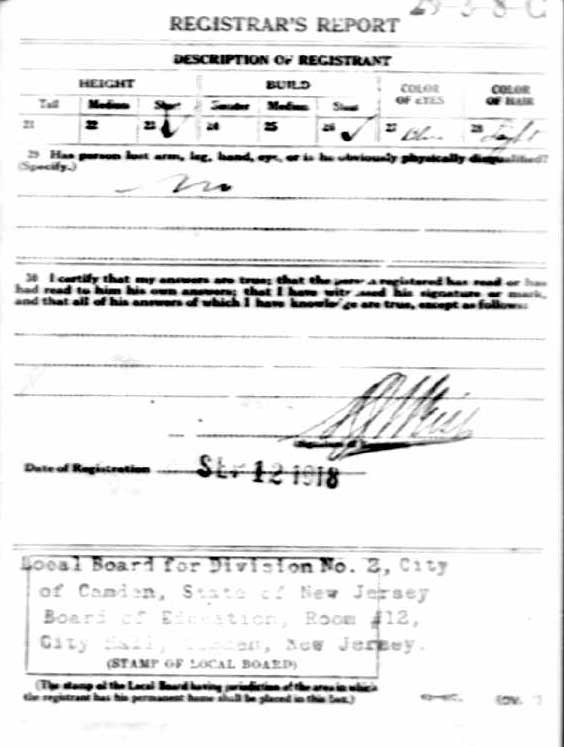 29-3-8-C
REGISTRAR'S REPORT
DESCRIPTION OF REGISTRANT
HEIGHT BUILD COLOR OF EYES COLOR OF HAIR
Tall Medium Short Slender Medium Stout
21 22 23 ✓ 24 25 26 ✓ 27 Blue 28 Light
29 Has person lost arm, leg, hand, eye, or is he obviously physically disqualified?
(Specify.)
No
30 I certify that my answers are true; that the person registered has read or has
had read to him his own answers; that I have witnessed his signature or mark,
and that all of his answers of which I have knowledge are true, except as follows:
Date of Registration SEP 12 1918
Local Board for Division No. 2, City
of Camden, State of New Jersey
Board of Education, Room #12,
City Hall, Camden, New Jersey.
(STAMP OF LOCAL BOARD)
(The stamp of the Local Board having jurisdiction of the area in which
the registrant has his permanent home shall be placed in this box.)